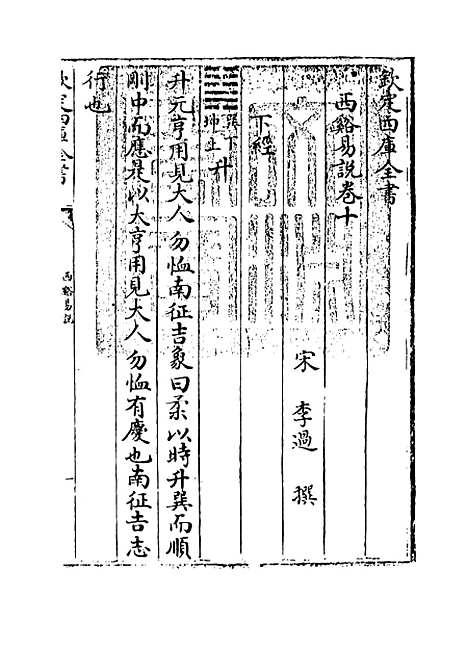 欽定四庫全書
西谿易說卷十
宋 李過 撰
下經
巽下
坤上
升
升元亨用見大人勿恤南征吉彖曰柔以時升巽而順
剛中而應是以大亨用見大人勿恤有慶也南征吉志
行也
欽定四庫全書
西谿易說
一